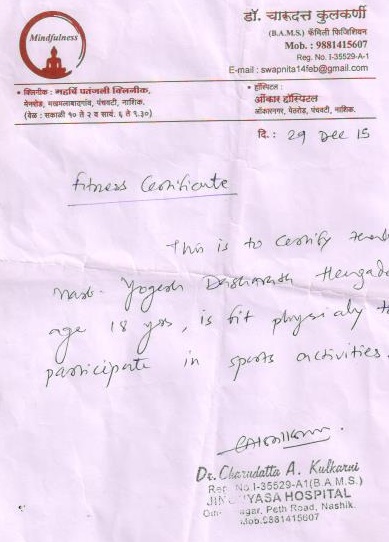 Mindfulness
डॉ. चारूदत्त कुलकर्णी
(B.A.M.S.) फॅमिली फिजिशियन
Mob. : 9881415607
Reg. No. I-35529-A-1
E-mail : swapnita14feb@gmail.com
• क्लिनीक : महर्षि पतंजली क्लिनीक,
मेनरोड, मखमलाबादगांव, पंचवटी, नाशिक.
(वेळ : सकाळी १० ते २ व सायं. ६ ते ९.३०)
• हॉस्पिटल :
ओंकार हॉस्पिटल
ओंकारनगर, पेठरोड, पंचवटी, नाशिक.
दि. : 29 Dec 15
Fitness Certificate
This is to certify
Mast. Yogesh Dasharath Hengade
age 18 yrs, is fit physicaly to
participate in sports activities.
Dr. Charudatta A. Kulkarni
Reg. No.I-35529-A1(B.A.M.S.)
HOSPITAL
Peth Road, Nashik.
Mob.9881415607